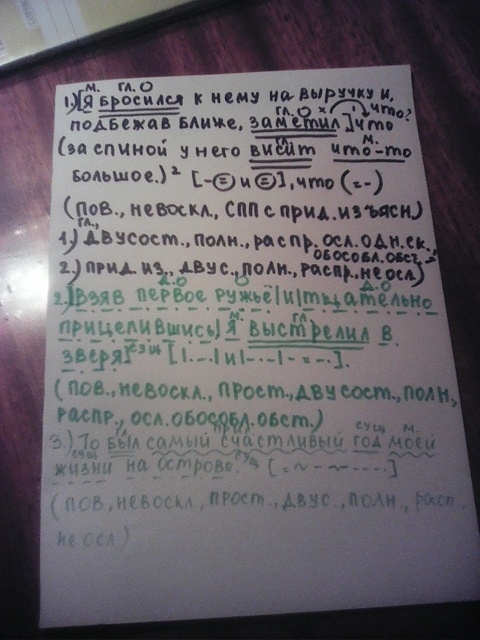 м. гл. О
1.) [Я бросился к нему на выручку и,
гл. О х что?
подбежав ближе, заметил] что
гл. м.
(за спиной у него висит что-то
большое.)² [-⊜и⊜], что (=-)
(пов., невоскл., СПП с прид. изъясн.)
гл.,
1.) двусост., полн., распр. осл. одн. ск.,
обособл. обст.,
2.) прид. из., двус., полн., распр. не осл.)
д.О О д.О
2.) Взяв первое ружьё|и|тщательно
м. гл.
прицелившись| я выстрелил в
сущ
зверя] [|.-.|и|-.-.|-=-.].
(пов., невоскл., прост., двусост., полн.,
распр., осл. обособл. обст.)
гл. прил. сущ м.
3.) То был самый счастливый год моей
сущ сущ
жизни на острове. [=~-~-----]
(пов., невоскл., прост., двус., полн., расп.,
не осл)